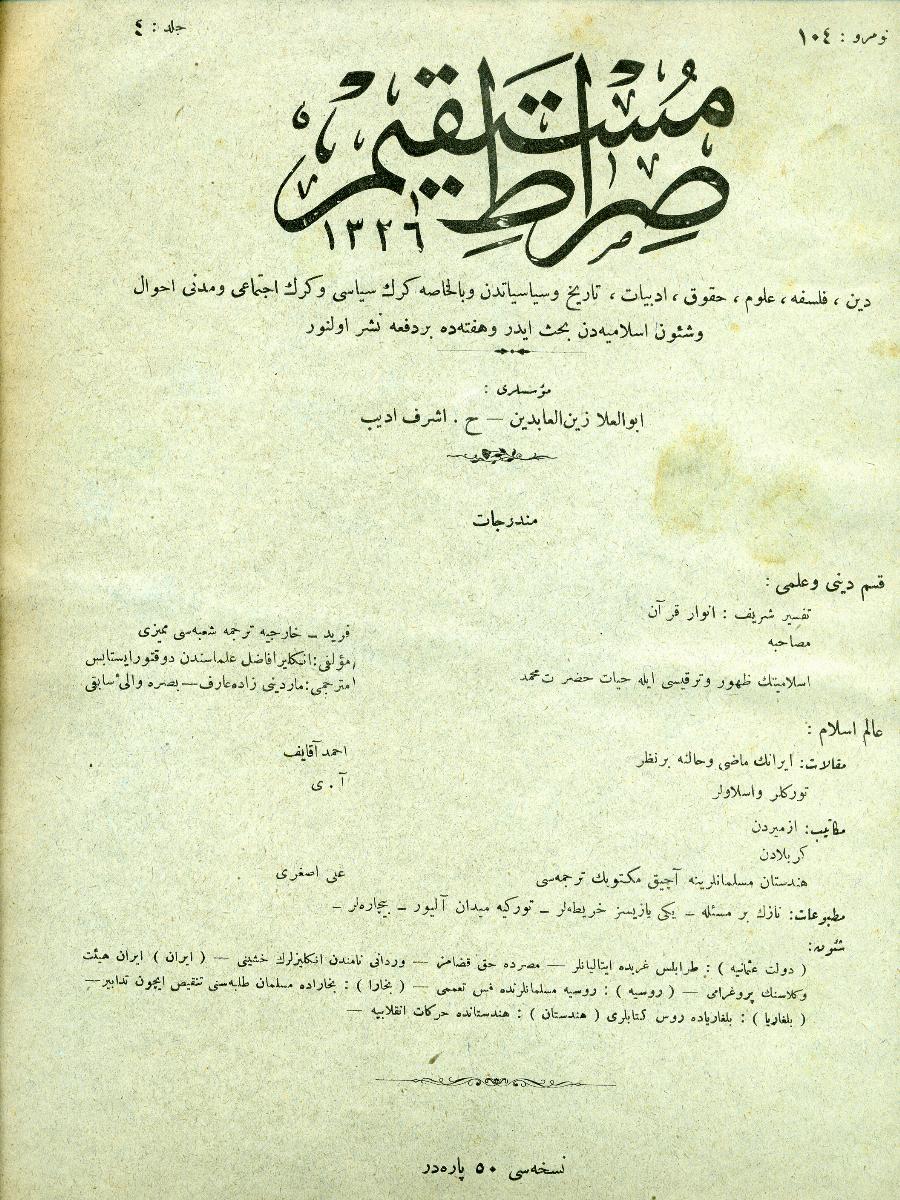 نومرو : ١٠٤
جلد : ٤
صراط مستقيم
١٣٢٦
دين ، فلسفه ، علوم ، حقوق ، ادبيات ، تاريخ وسياسياتدن وبالخاصه كرك سياسى وكرك اجتماعى ومدنى احوال
وشئون اسلاميه‌دن بحث ايدر وهفته‌ده بردفعه نشر اولنور
مؤسسلرى :
ابوالعلا زين‌العابدين — ح . اشرف اديب
مندرجات
قسم دينى وعلمى :
تفسير شريف : انوار قرآن
مصاحبه
فريد ـ خارجيه ترجمه شعبه‌سى مميزى
اسلاميتك ظهور وترقيسى ايله حيات حضرت محمد
مؤلفى : انكليز افاضل علماسندن دوقتور
مترجمى : ماردينى زاده عارف — بصره والئ سابقى
عالم اسلام :
مقالات : ايرانك ماضى وحالنه برنظر
احمد آقايف
توركلر واسلاولر
آ . ى
مكاتيب : ازميردن
كربلادن
هندستان مسلمانلرينه آچيق مكتوبك ترجمه‌سى
على اصغرى
مطبوعات : نازك بر مسئله ـ يكى يازيسز خريطه‌لر ـ توركيه ميدان آليور ـ بيچاره‌لر ـ
شئون :
( دولت عثمانيه ) : طرابلس غربده ايتاليانلر — مصرده حق قضامز — وردانى نامندن انكليزلرك خشيتى — ( ايران ) ايران هيئت
وكلاسنك پروغرامى — ( روسيه ) : روسيه مسلمانلرنده فس تعممى — ( بخارا ) : بخاراده مسلمان طلبه‌سنى تنقيص ايچون تدابير —
( بلغاريا ) : بلغارياده روس كتابلرى ( هندستان ) : هندستانده حركات انقلابيه —
نسخه‌سى ٥٠ پاره‌در